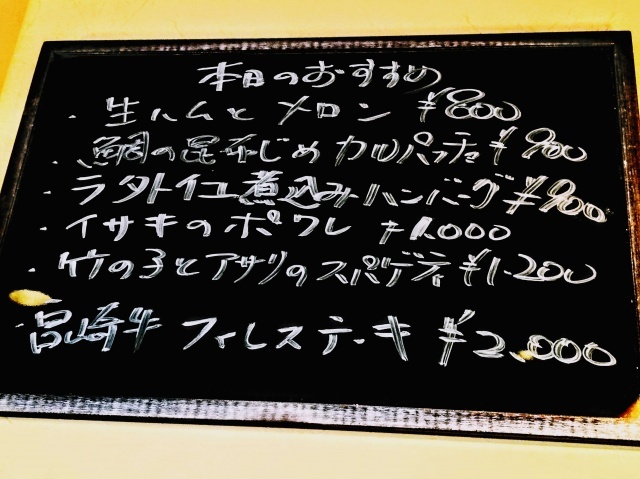 本日のおすすめ
・生ハムと メロン ¥800
・鯛の昆布じめ カルパッチョ ¥900
・ラタトイユ煮込みハンバーグ ¥900
・イサキのポワレ ¥1.000
・竹の子とアサリのスパゲティ ¥1.200
・宮崎牛 フィレステーキ ¥2.000